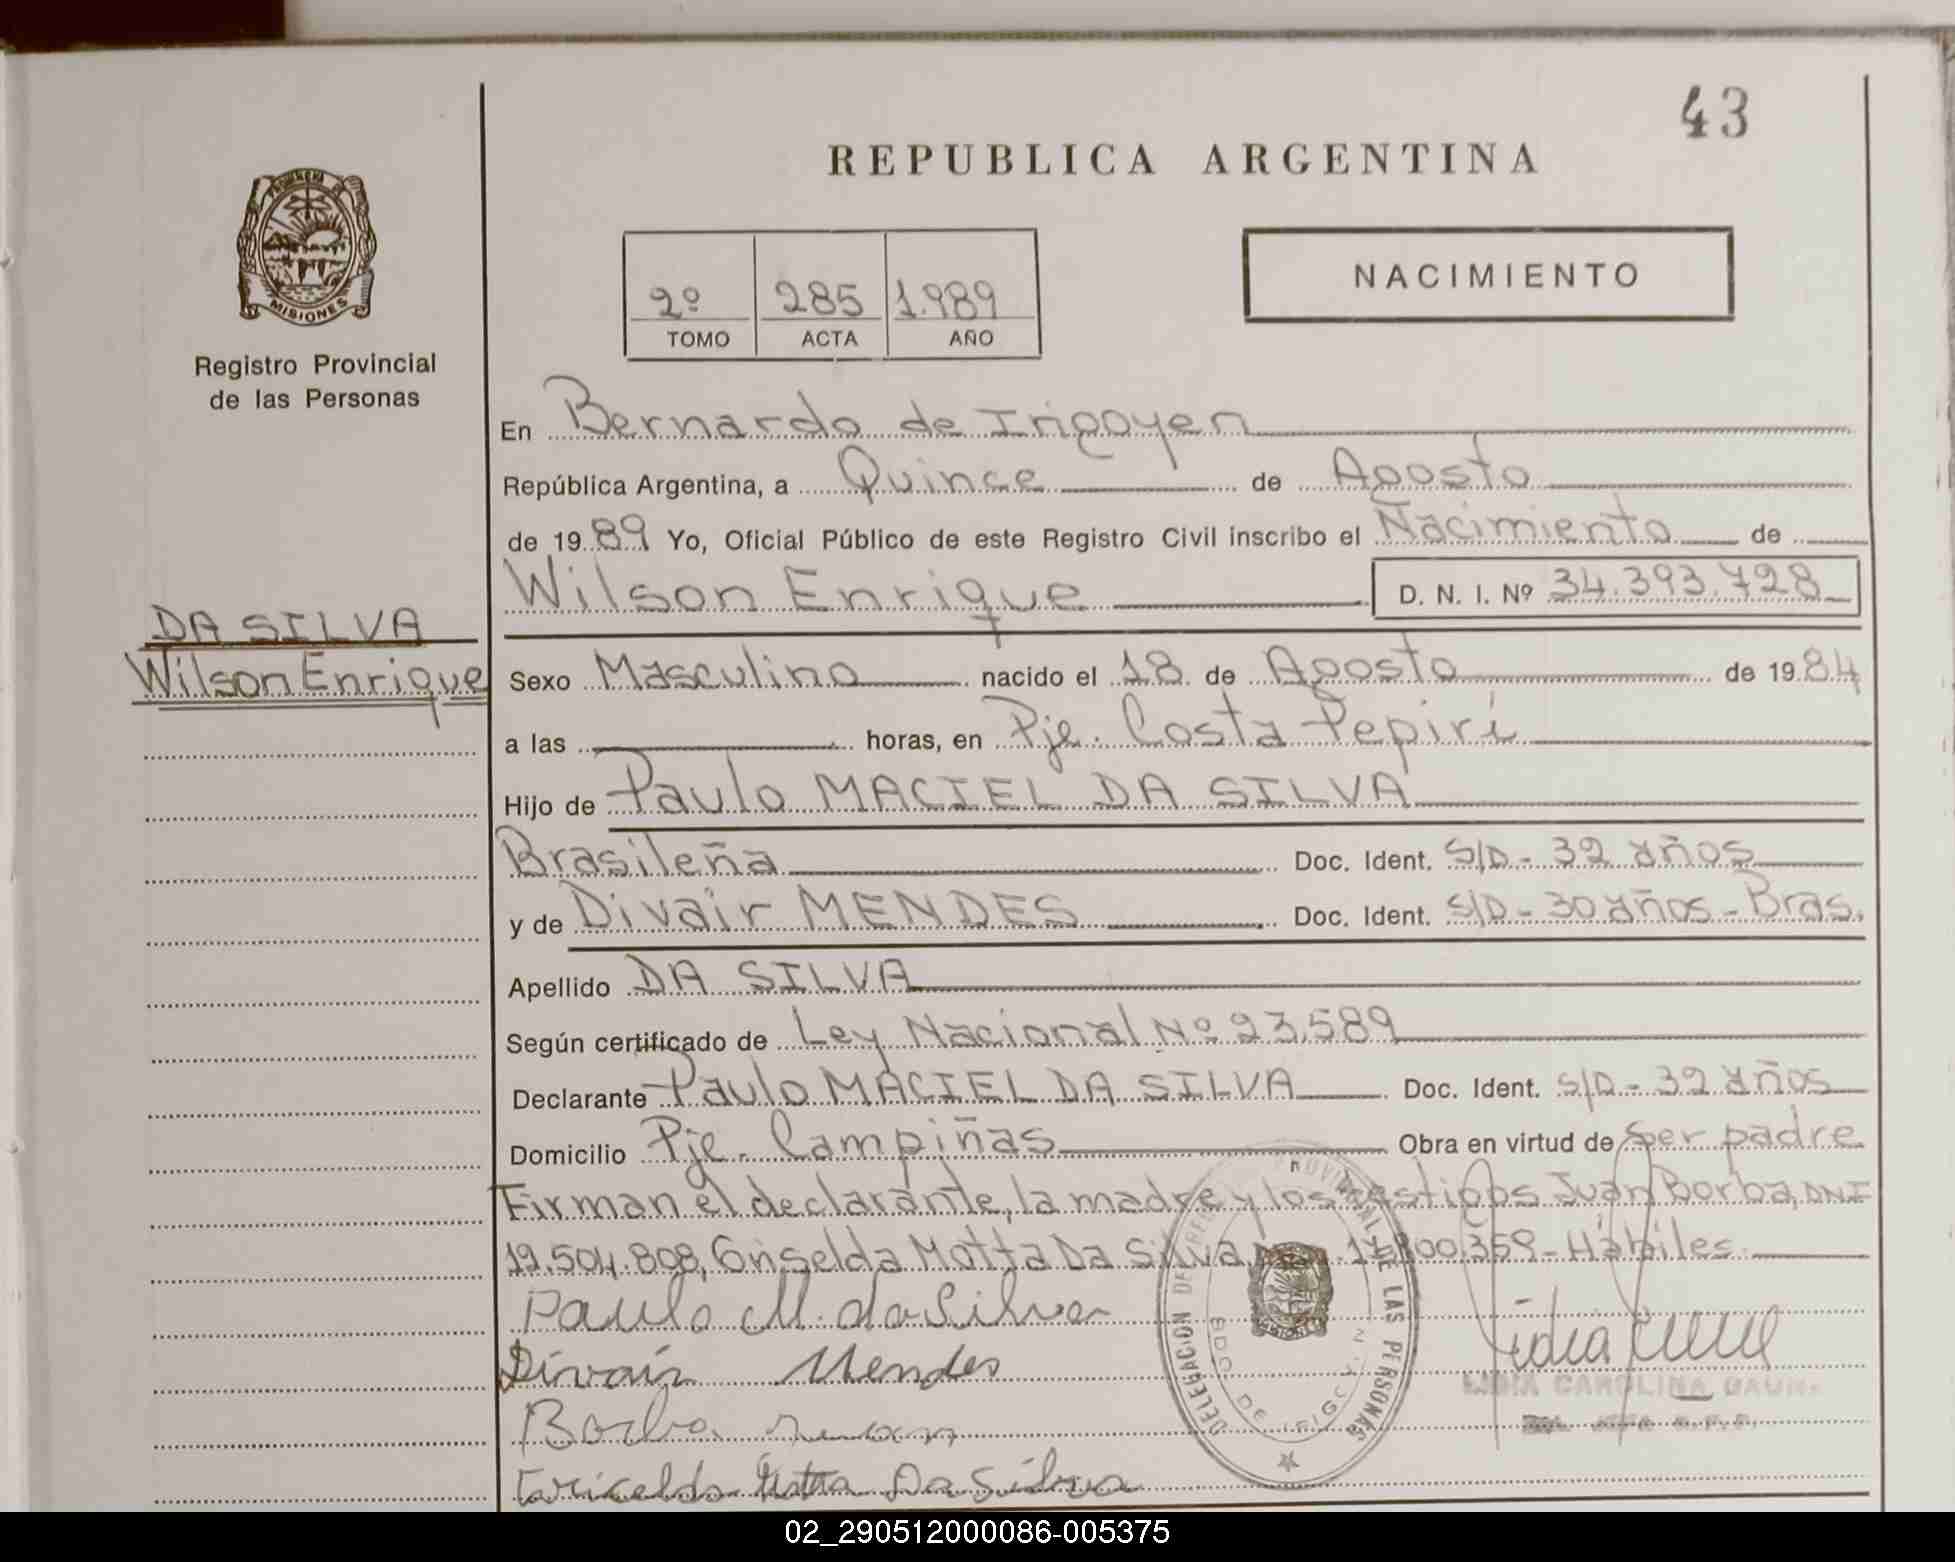 43
REPUBLICA ARGENTINA
PROVINCIA DE
MISIONES
Registro Provincial
de las Personas
NACIMIENTO
2º 285 1.989
TOMO ACTA AÑO
En Bernardo de Irigoyen
República Argentina, a Quince de Agosto
de 1989 Yo, Oficial Público de este Registro Civil inscribo el Nacimiento de
Wilson Enrique D. N. I. Nº 34.393.728
DA SILVA
Wilson Enrique
Sexo Masculino nacido el 18 de Agosto de 1984
a las horas, en Pje. Costa Pepirí
Hijo de Paulo MACIEL DA SILVA
Brasileña Doc. Ident. S/D - 32 años
y de Divair MENDES Doc. Ident. S/D - 30 años - Bras.
Apellido DA SILVA
Según certificado de Ley Nacional Nº 23.589
Declarante Paulo MACIEL DA SILVA Doc. Ident. S/D - 32 años
Domicilio Pje. Campiñas Obra en virtud de ser padre
Firman el declarante, la madre y los testigos Juan Borba, DNI
19.504.808, Griselda Motta Da Silva - Hábiles.
Paulo M. da Silva
Divair Mendes
Borba Juan
Griselda Motta Da Silva
DELEGACION DE LAS PERSONAS
LIDIA CAROLINA
02_290512000086-005375